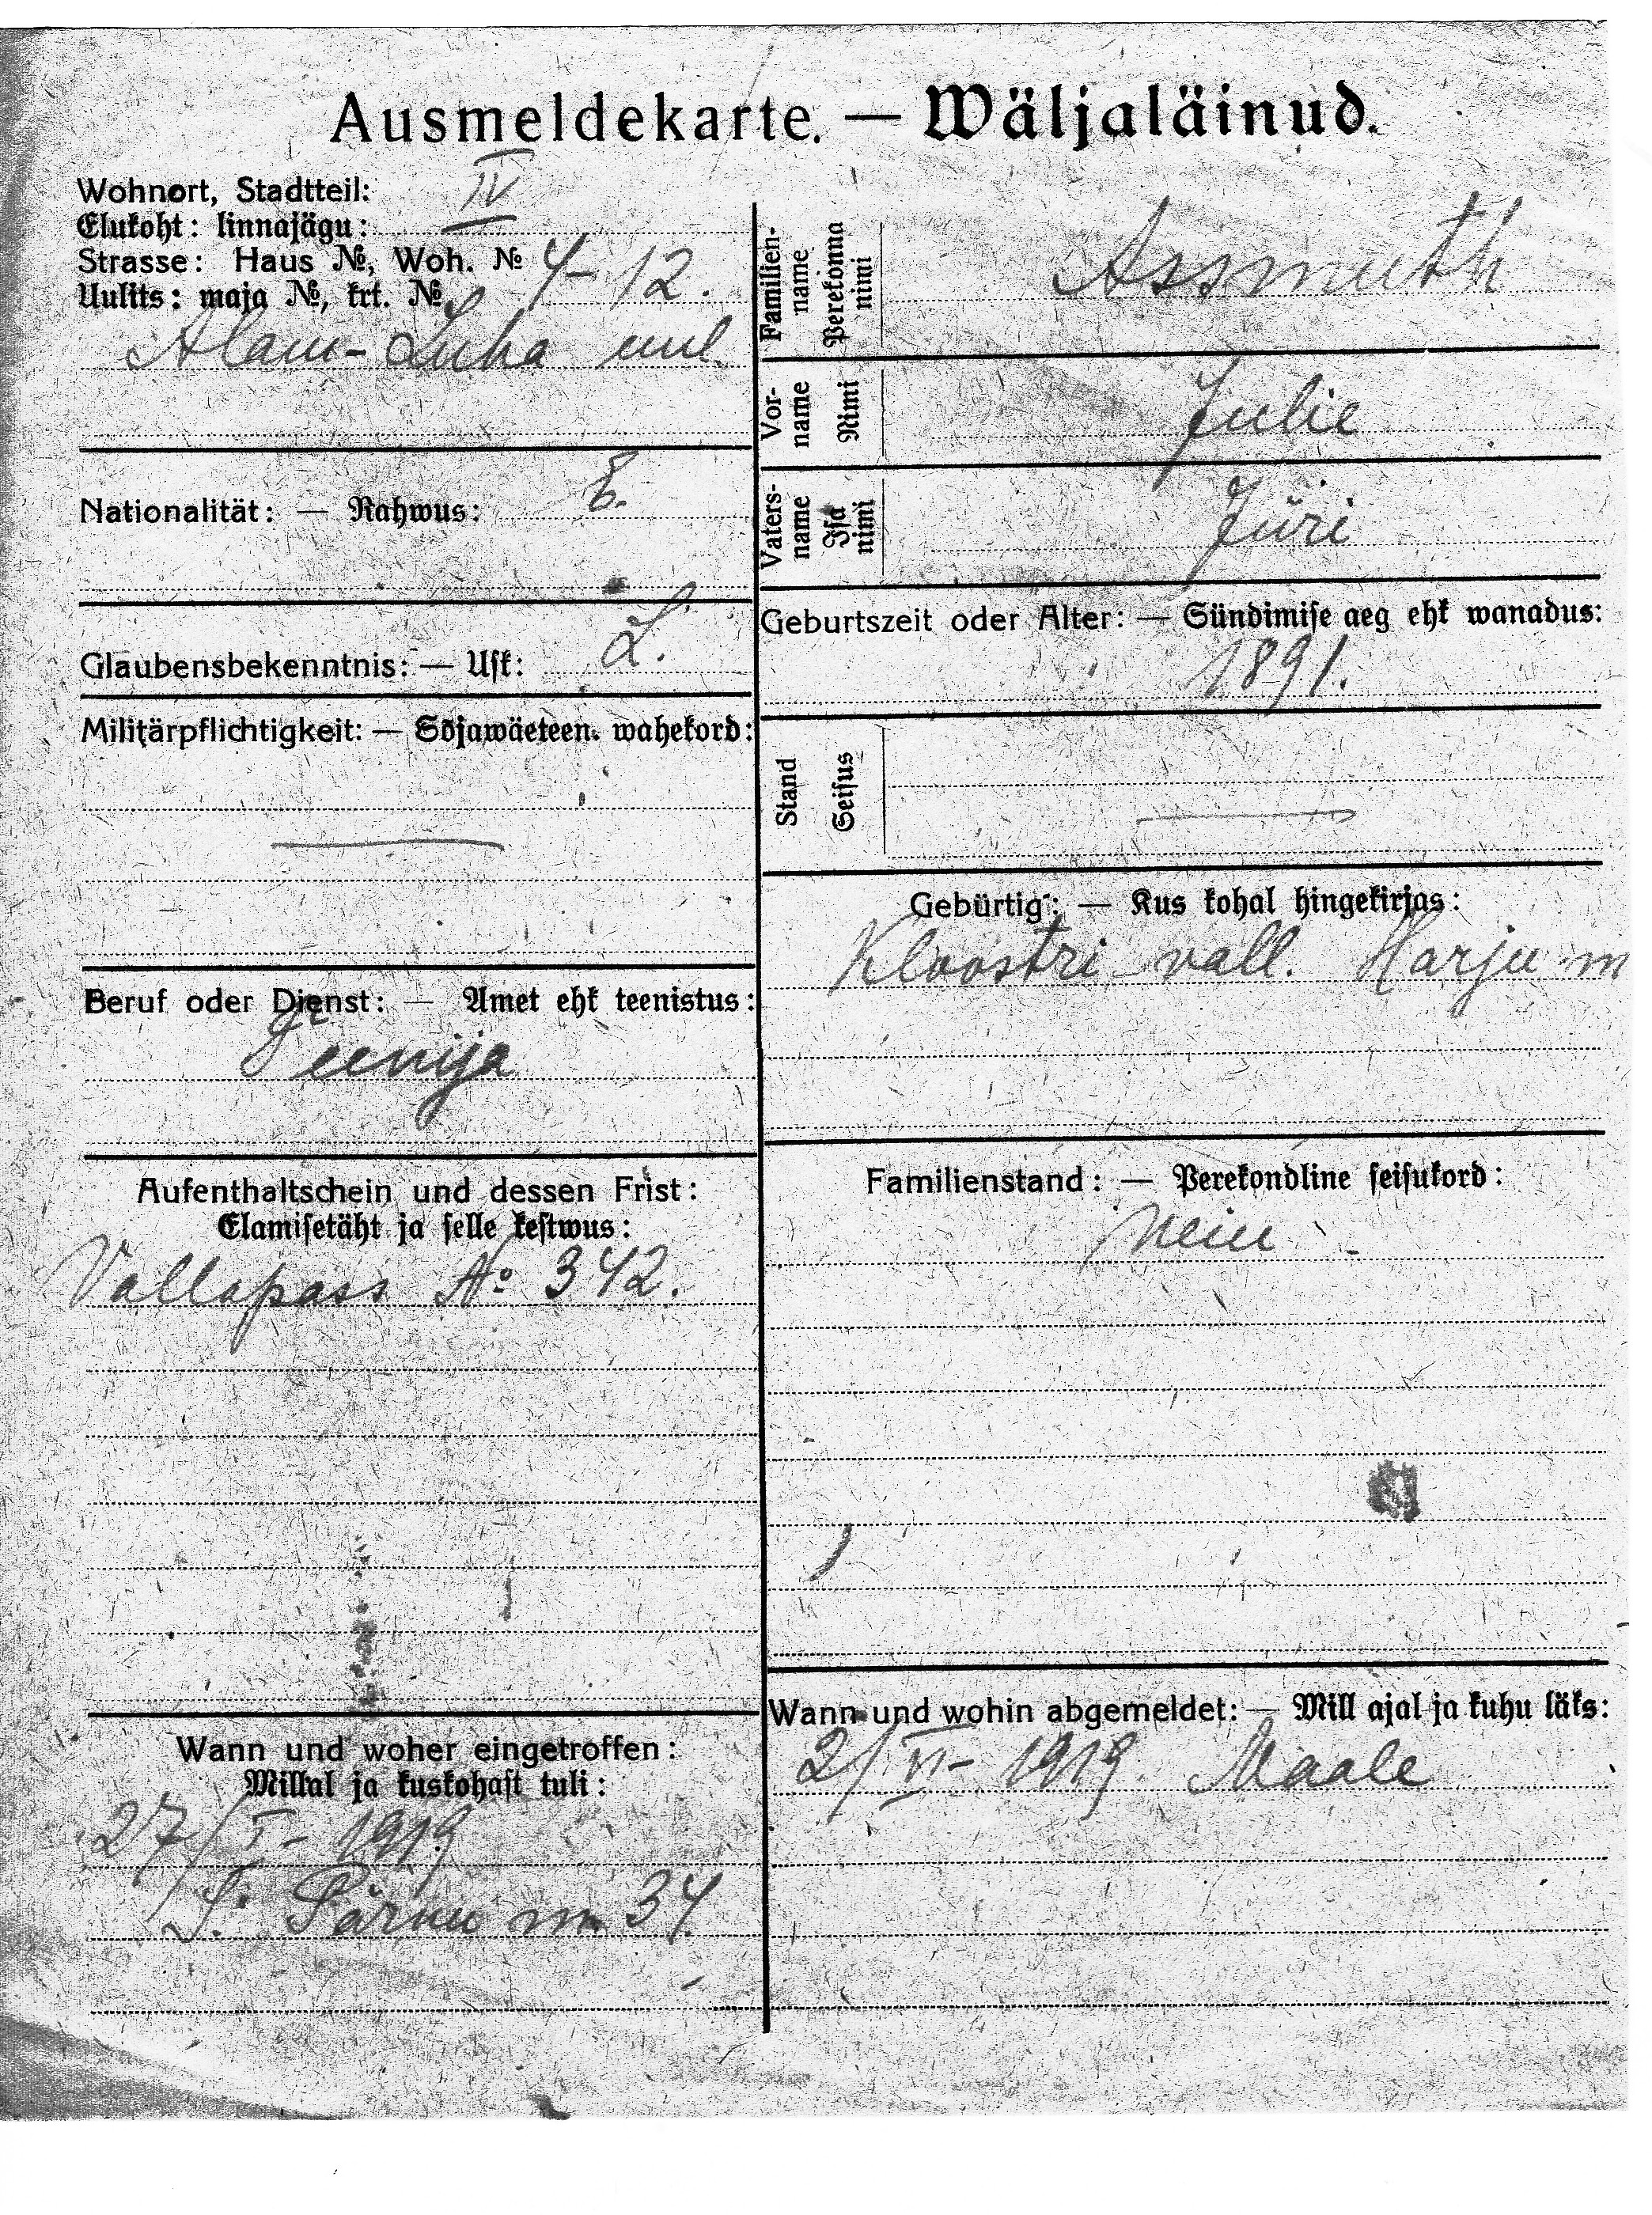 Ausmeldekarte. — Wäljaläinud.
Wohnort, Stadtteil:
Elukoht: linnajägu:
IV
Strasse: Haus №, Woh. №
Uulits: maja №, krt. №
4-12.
Alam-Luha uul.
Nationalität: — Rahwus: E.
Glaubensbekenntnis: — Usk: L.
Militärpflichtigkeit: — Sõjawäeteen. wahekord:
Beruf oder Dienst: — Amet ehk teenistus:
Teenija
Aufenthaltschein und dessen Frist:
Elamisetäht ja selle kestwus:
Vallapass № 342.
Wann und woher eingetroffen:
Millal ja kuskohast tuli:
27/I- 1919
S. Pärnu m. 34
Familien-
name
Perekonna
nimi
Assmuth
Vor-
name
Nimi
Julie
Vaters-
name
Isa
nimi
Jüri
Geburtszeit oder Alter: — Sündimise aeg ehk wanadus:
1891.
Stand
Seisus
Gebürtig: — Kus kohal hingekirjas:
Kloostri vall. Harju m
Familienstand: — Perekondline seisukord:
Wann und wohin abgemeldet: — Mill ajal ja kuhu läks:
21/VI- 1919. Maale